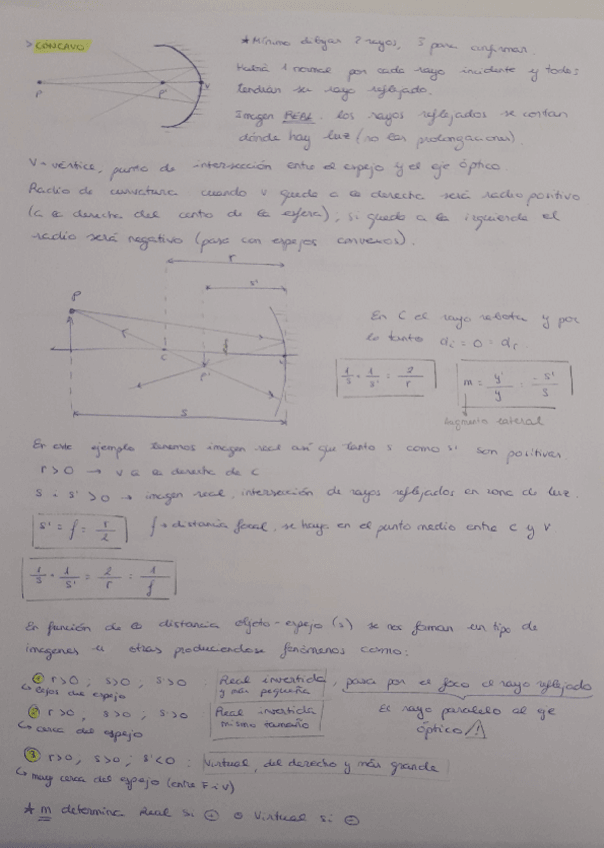 > CONCAVO
* Mínimo dibujar 2 rayos, 3 para confirmar.
Habrá 1 normal por cada rayo incidente y todos
tendrán su rayo reflejado.
Imagen REAL. los rayos reflejados se cortan
dónde hay luz (no las prolongaciones).
P P' V
V = vértice, punto de intersección entre el espejo y el eje óptico.
Radio de curvatura cuando V quede a la derecha será radio positivo
(a la derecha del centro de la esfera); si queda a la izquierda el
radio será negativo (pasa con espejos convexos).
r
s'
P
C
P'
f
s
En C el rayo rebota y por
lo tanto di = 0 = dr.
1/s + 1/s' = 2/r
m = y'/y = -s'/s
aumento lateral
En este ejemplo tenemos imagen real así que tanto s como s' son positivas
r > 0 → V a la derecha de C
s · s' > 0 → imagen real, intersección de rayos reflejados en zona de luz.
s' = f = r/2
f → distancia focal, se haya en el punto medio entre C y V
1/s + 1/s' = 2/r = 1/f
En función de la distancia objeto-espejo (s) se nos forman un tipo de
imagenes u otras produciendose fenómenos como:
① r>0 ; s>0 ; s>0 : Real invertida y más pequeña , pasa por el foco el rayo reflejado
↳ lejos del espejo
② r>0, s>0 ; s>0 Real invertida mismo tamaño
El rayo paralelo al eje
óptico ⚠
↳ cerca del espejo
③ r>0, s>0 ; s'<0 : Virtual, del derecho y más grande
↳ muy cerca del espejo (entre F y V)
* m determina Real si ⊖ o Virtual si ⊖